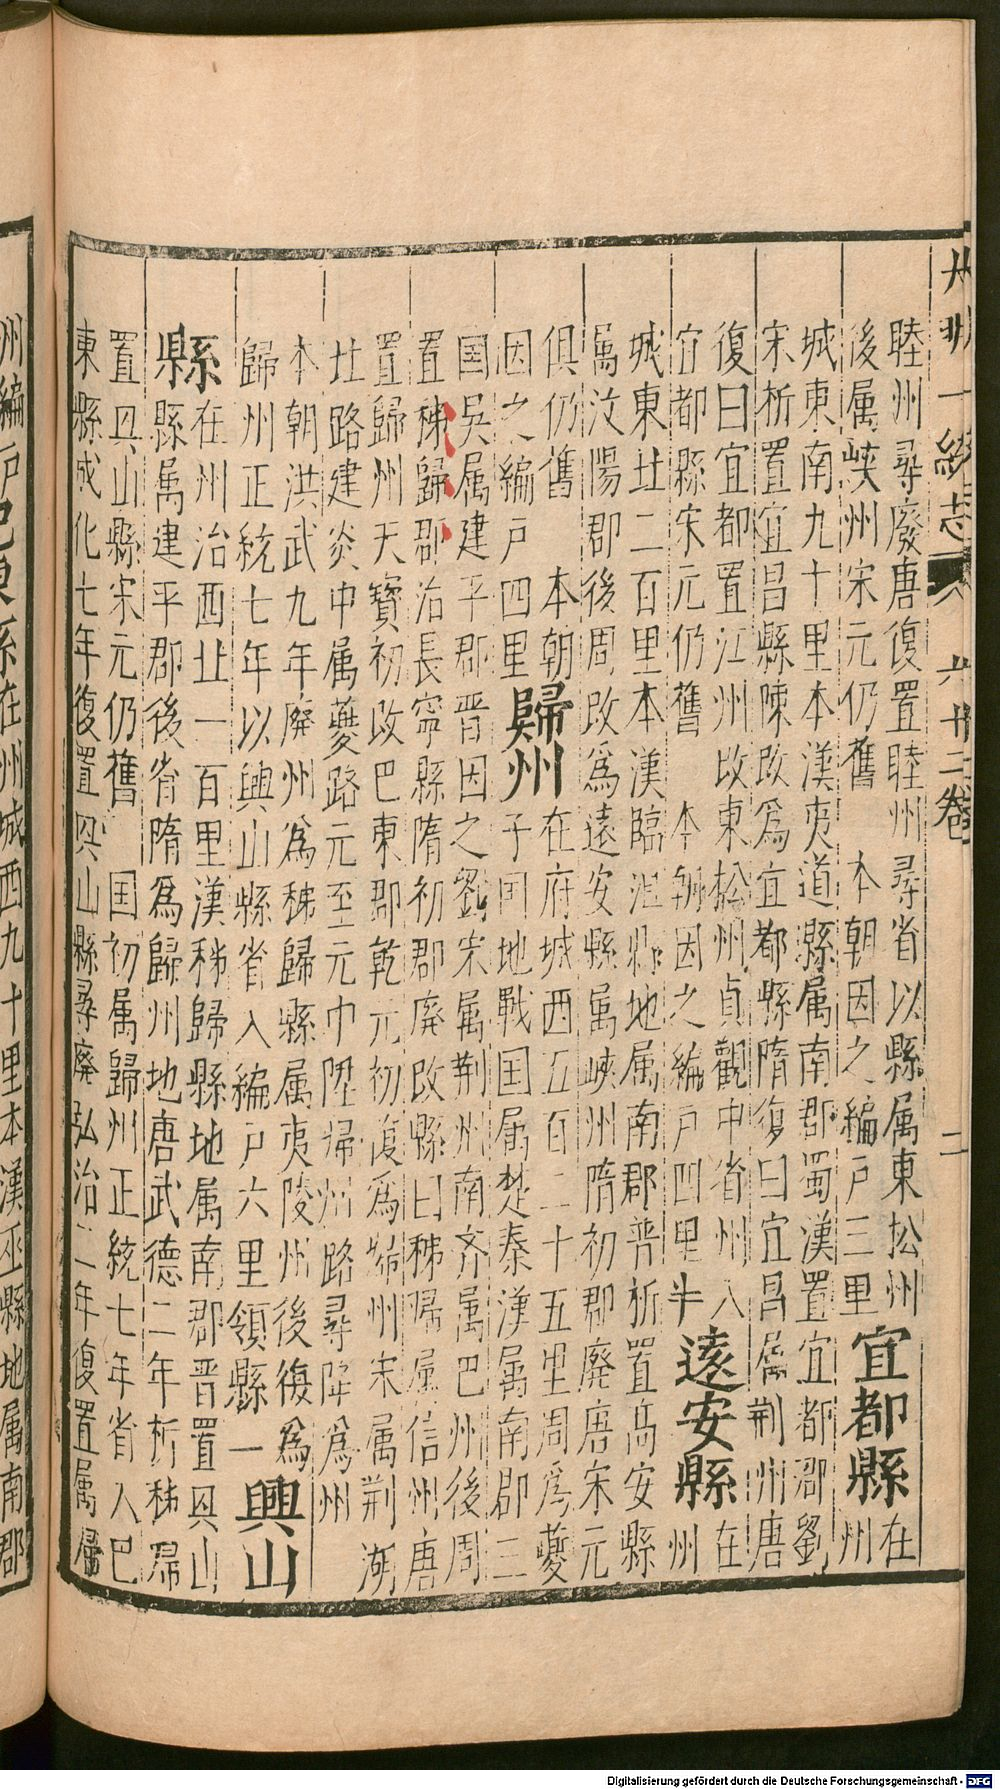 大明一統志 六十二卷 二
睦州尋廢唐復置睦州尋省以縣属東松州
後属峽州宋元仍舊 本朝因之編户三里宜都縣在州
城東南九十里本漢夷道縣属南郡蜀漢置宜都郡劉
宋析置宜昌縣陳改為宜都縣隋復曰宜昌属荆州唐
復曰宜都置江州改東松州貞觀中省州入
宜都縣宋元仍舊 本朝因之編户四里半遠安縣在州
城東北二百里本漢臨沮縣地属南郡晋析置高安縣
属汶陽郡後周改為遠安縣属峽州隋初郡廢唐宋元
俱仍舊 本朝
因之編户四里歸州在府城西五百二十五里周為夔
子国地戰国属楚秦漢属南郡三
国吳属建平郡晋因之劉宋属荆州南齐属巴州後周
置秭歸郡治長寧縣隋初郡廢改縣曰秭歸属信州唐
置歸州天寶初改巴東郡乾元初復為歸州宋属荆湖
北路建炎中属夔路元至元中陞歸州路尋降為州
本朝洪武九年廢州為秭歸縣属夷陵州後復為
歸州正統七年以興山縣省入編户六里領縣一興山
縣在州治西北一百里漢秭歸縣地属南郡晋置兴山
縣属建平郡後省隋為歸州地唐武德二年析秭歸
置兴山縣宋元仍舊 国初属歸州正統七年省入巴
東縣成化七年復置兴山縣尋廢弘治二年復置属歸
州編户 巴東縣在州城西九十里本漢巫縣地属南郡
Digitalisierung gefördert durch die Deutsche Forschungsgemeinschaft - DFG